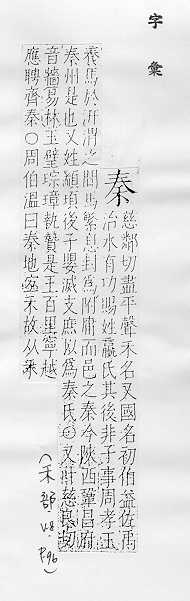 字彙
秦 慈鄰切盡平聲禾名又國名初伯益佐禹
治水有功賜姓嬴氏其後非子事周孝王
養馬於汧渭之間馬繁息封為附庸而邑之秦今陝西鞏昌府
秦州是也又姓顓頊後子嬰滅支庶以為秦氏○又叶慈良切
音牆易林玉璧琮璋執贄是王百里寧越
應聘齊秦○周伯溫曰秦地宐禾故从禾
(禾部. P.96)